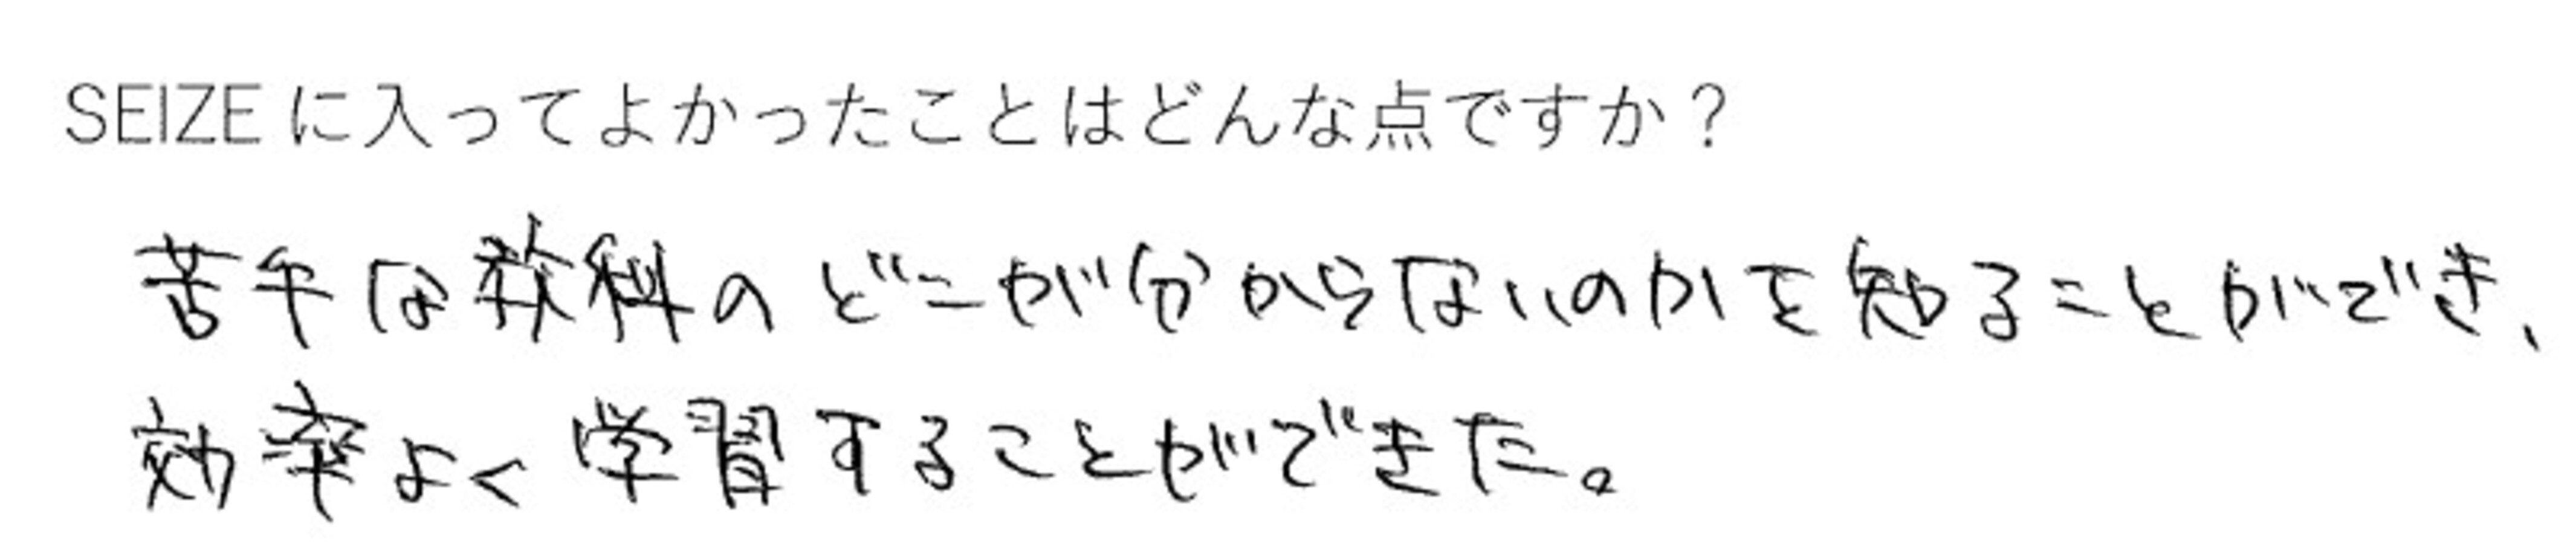 SEIZE に入ってよかったことはどんな点ですか？
苦手な教科のどこが分からないのかを知ることができ、
効率よく学習することができた。